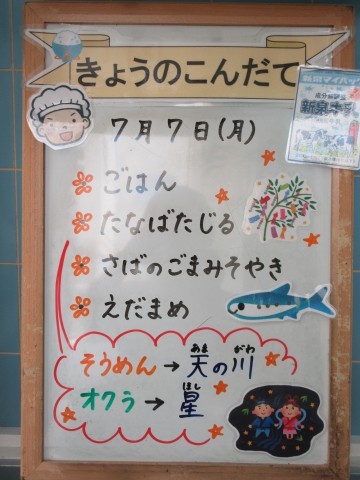 きょうのこんだて
新泉牛乳
7月7日(月)
ごはん
たなばたじる
さばのごまみそやき
えだまめ
そうめん→天の川
あま がわ
オクラ→星
ほし